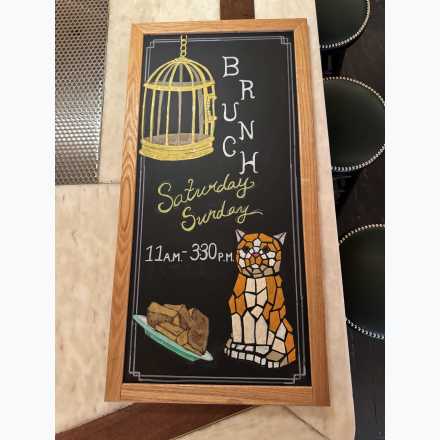 BRUNCH
Saturday
Sunday
11A.M.-330P.M.